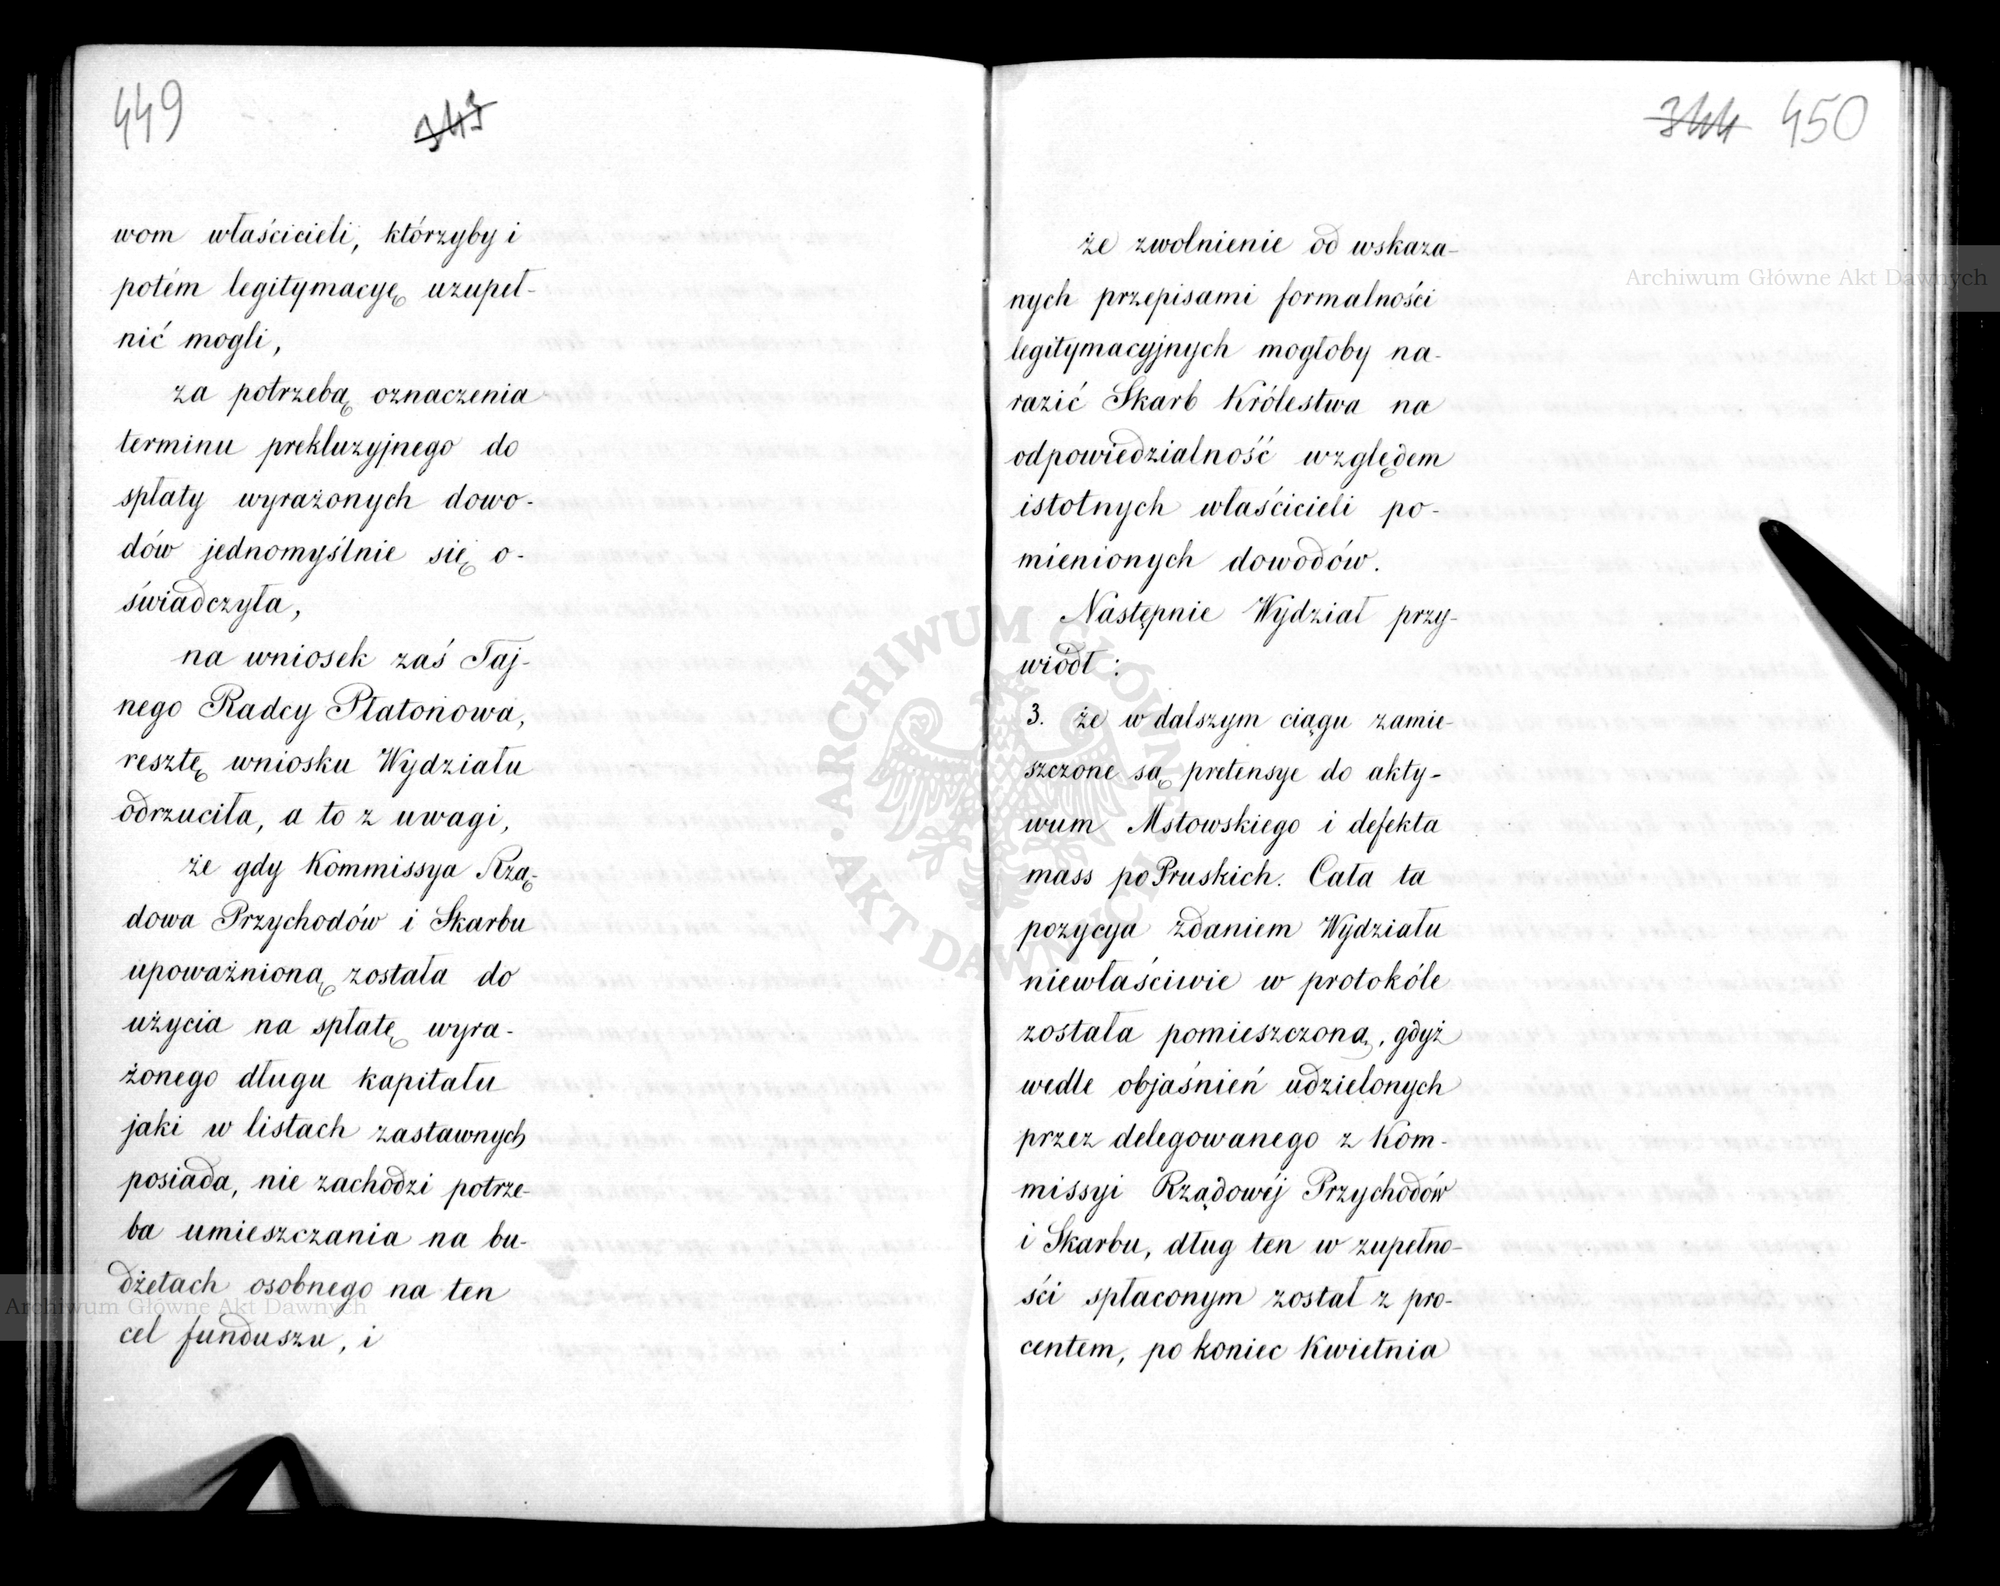 449
343
wom właścicieli, którzyby i
potém legitymacyę uzupeł-
nić mogli,
za potrzebą oznaczenia
terminu prekluzyjnego do
spłaty wyrażonych dowo-
dów jednomyślnie się o-
świadczyła,
na wniosek zaś Taj-
nego Radcy Płatonowa,
resztę wniosku Wydziału
odrzuciła, a to z uwagi,
że gdy Kommissya Rzą-
dowa Przychodów i Skarbu
upoważnioną została do
użycia na spłatę wyra-
żonego długu kapitału
jaki w listach zastawnych
posiada, nie zachodzi potrze-
ba umieszczania na bu-
dżetach osobnego na ten
cel funduszu, i
344 450
że zwolnienie od wskaza-
nych przepisami formalności
legitymacyjnych mogłoby na-
razić Skarb Królestwa na
odpowiedzialność względem
istotnych właścicieli po-
mienionych dowodów.
Następnie Wydział przy-
wiódł :
3. że w dalszym ciągu zamie-
szczone są pretensye do akty-
wum Mstowskiego i defekta
mass poPruskich. Cała ta
pozycya zdaniem Wydziału
niewłaściwie w protokóle
została pomieszczoną, gdyż
wedle objaśnień udzielonych
przez delegowanego z Kom-
missyi Rządowéj Przychodów
i Skarbu, dług ten w zupełno-
ści spłaconym został z pro-
centem, po koniec Kwietnia
Archiwum Główne Akt Dawnych
Archiwum Główne Akt Dawnych
ARCHIWUM GŁÓWNE AKT DAWNYCH